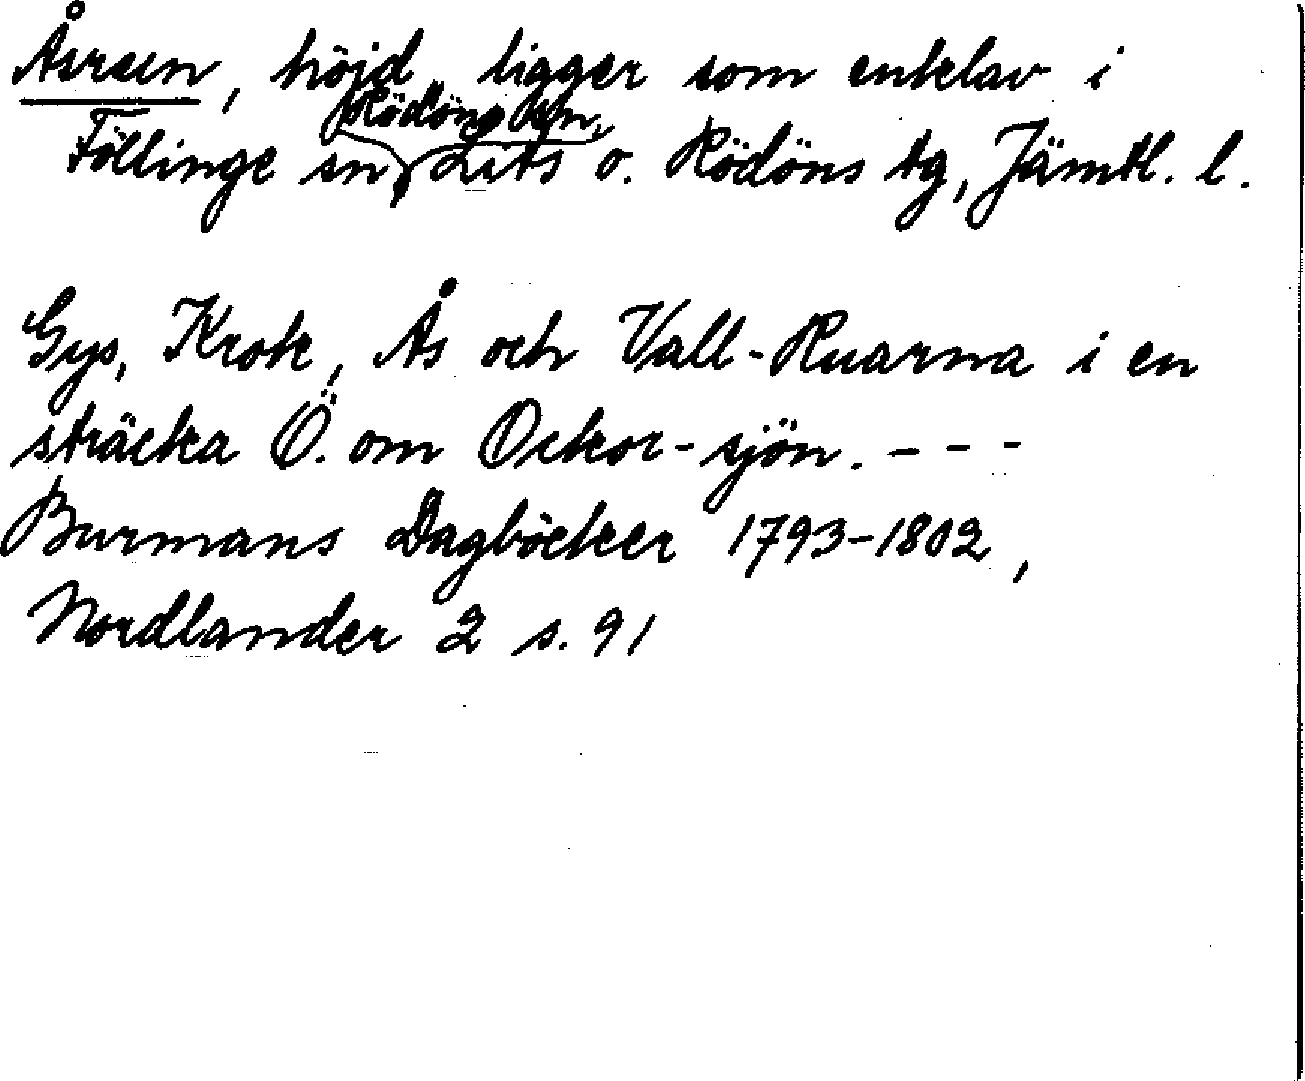 Åsruen, höjd, ligger som enklav i
Rödöns sn,
Föllinge sn, Lits o. Rödöns tg, Jämtl. l.
Gys, Krok, Ås och Vall-Ruarna i en
sträcka Ö. om Ockor-sjön. - - -
Burmans Dagböcker 1793-1802,
Nordlander 2 s. 91